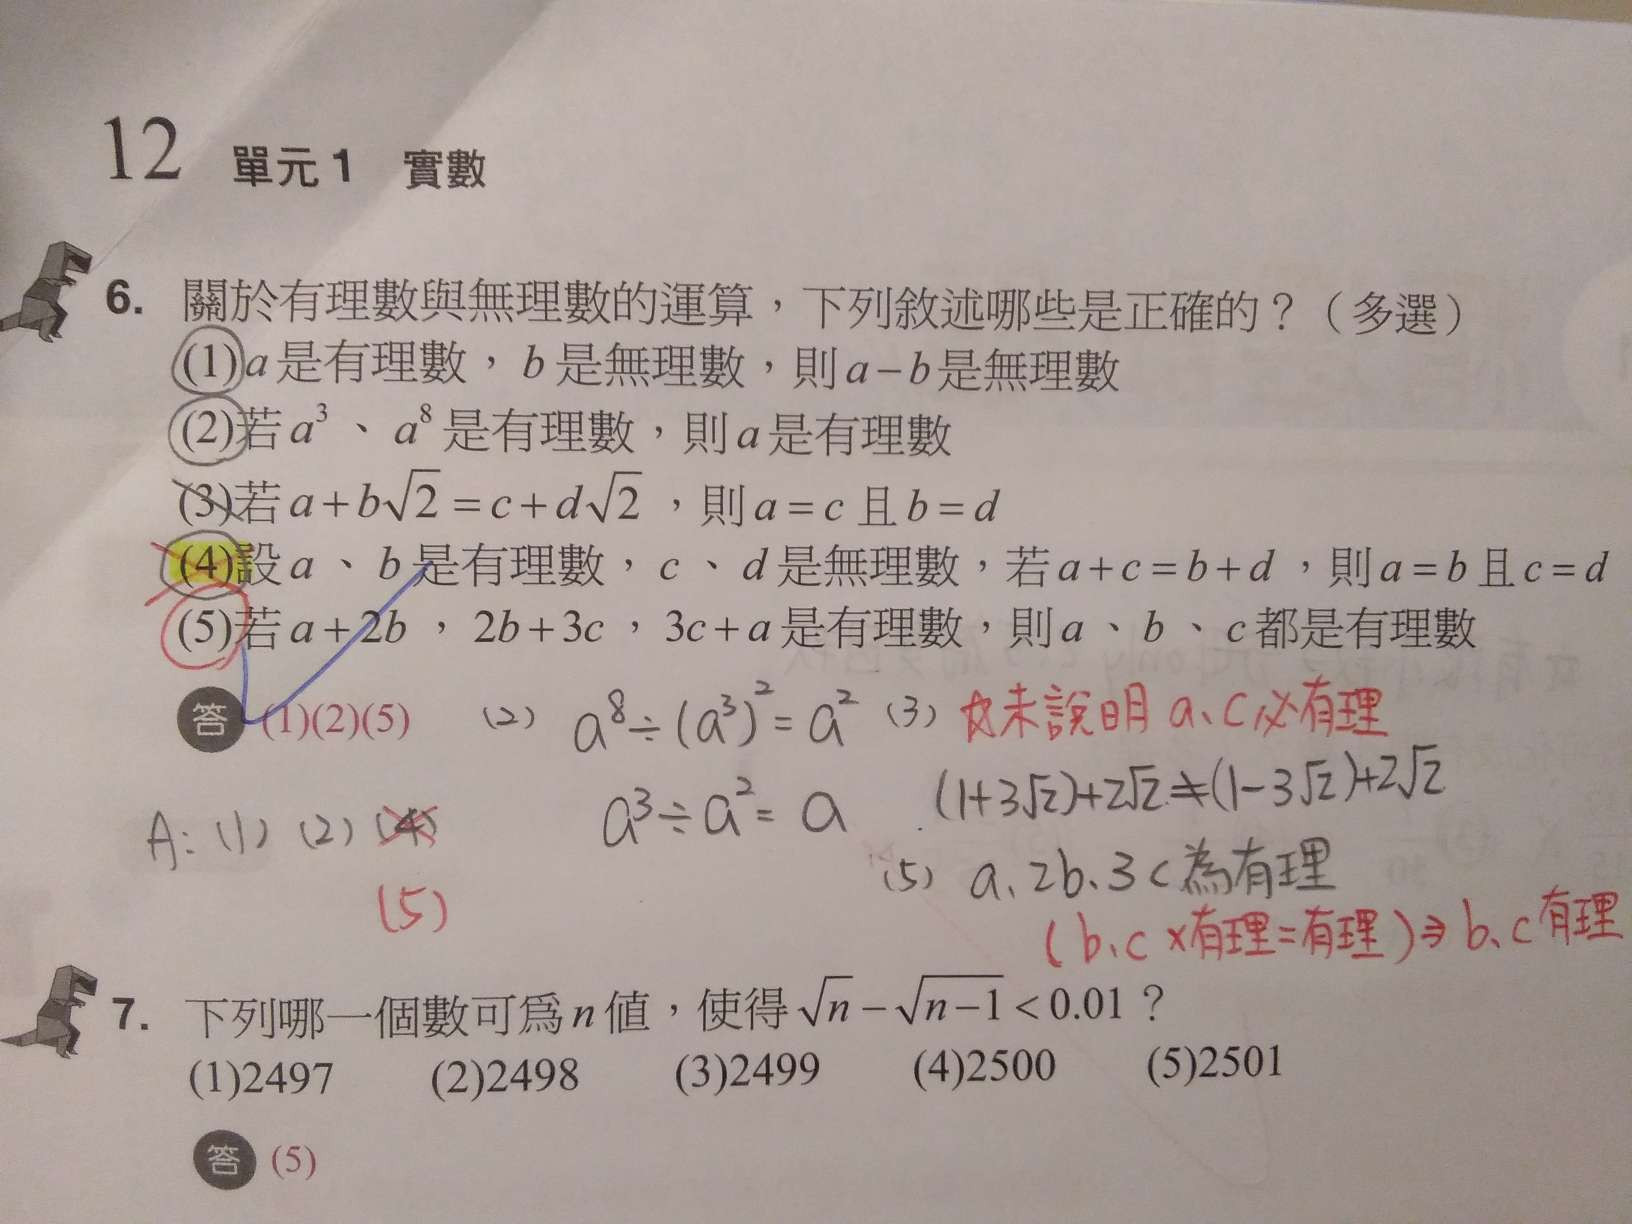 12 單元1 實數
6. 關於有理數與無理數的運算，下列敘述哪些是正確的？（多選）
(1)a是有理數，b是無理數，則a−b是無理數
(2)若a³、a⁸是有理數，則a是有理數
(3)若a+b√2=c+d√2，則a=c且b=d
(4)設a、b是有理數，c、d是無理數，若a+c=b+d，則a=b且c=d
(5)若a+2b，2b+3c，3c+a是有理數，則a、b、c都是有理數
答 (1)(2)(5)
(2) a⁸÷(a³)²=a²
a³÷a²=a
(3) 未說明a、c必有理
(1+3√2)+2√2≠(1−3√2)+2√2
A: (1) (2) (4)
(5)
(5) a、2b、3c為有理
(b、c×有理=有理)⇒b、c有理
7. 下列哪一個數可為n值，使得√n−√(n−1)<0.01？
(1)2497 (2)2498 (3)2499 (4)2500 (5)2501
答 (5)